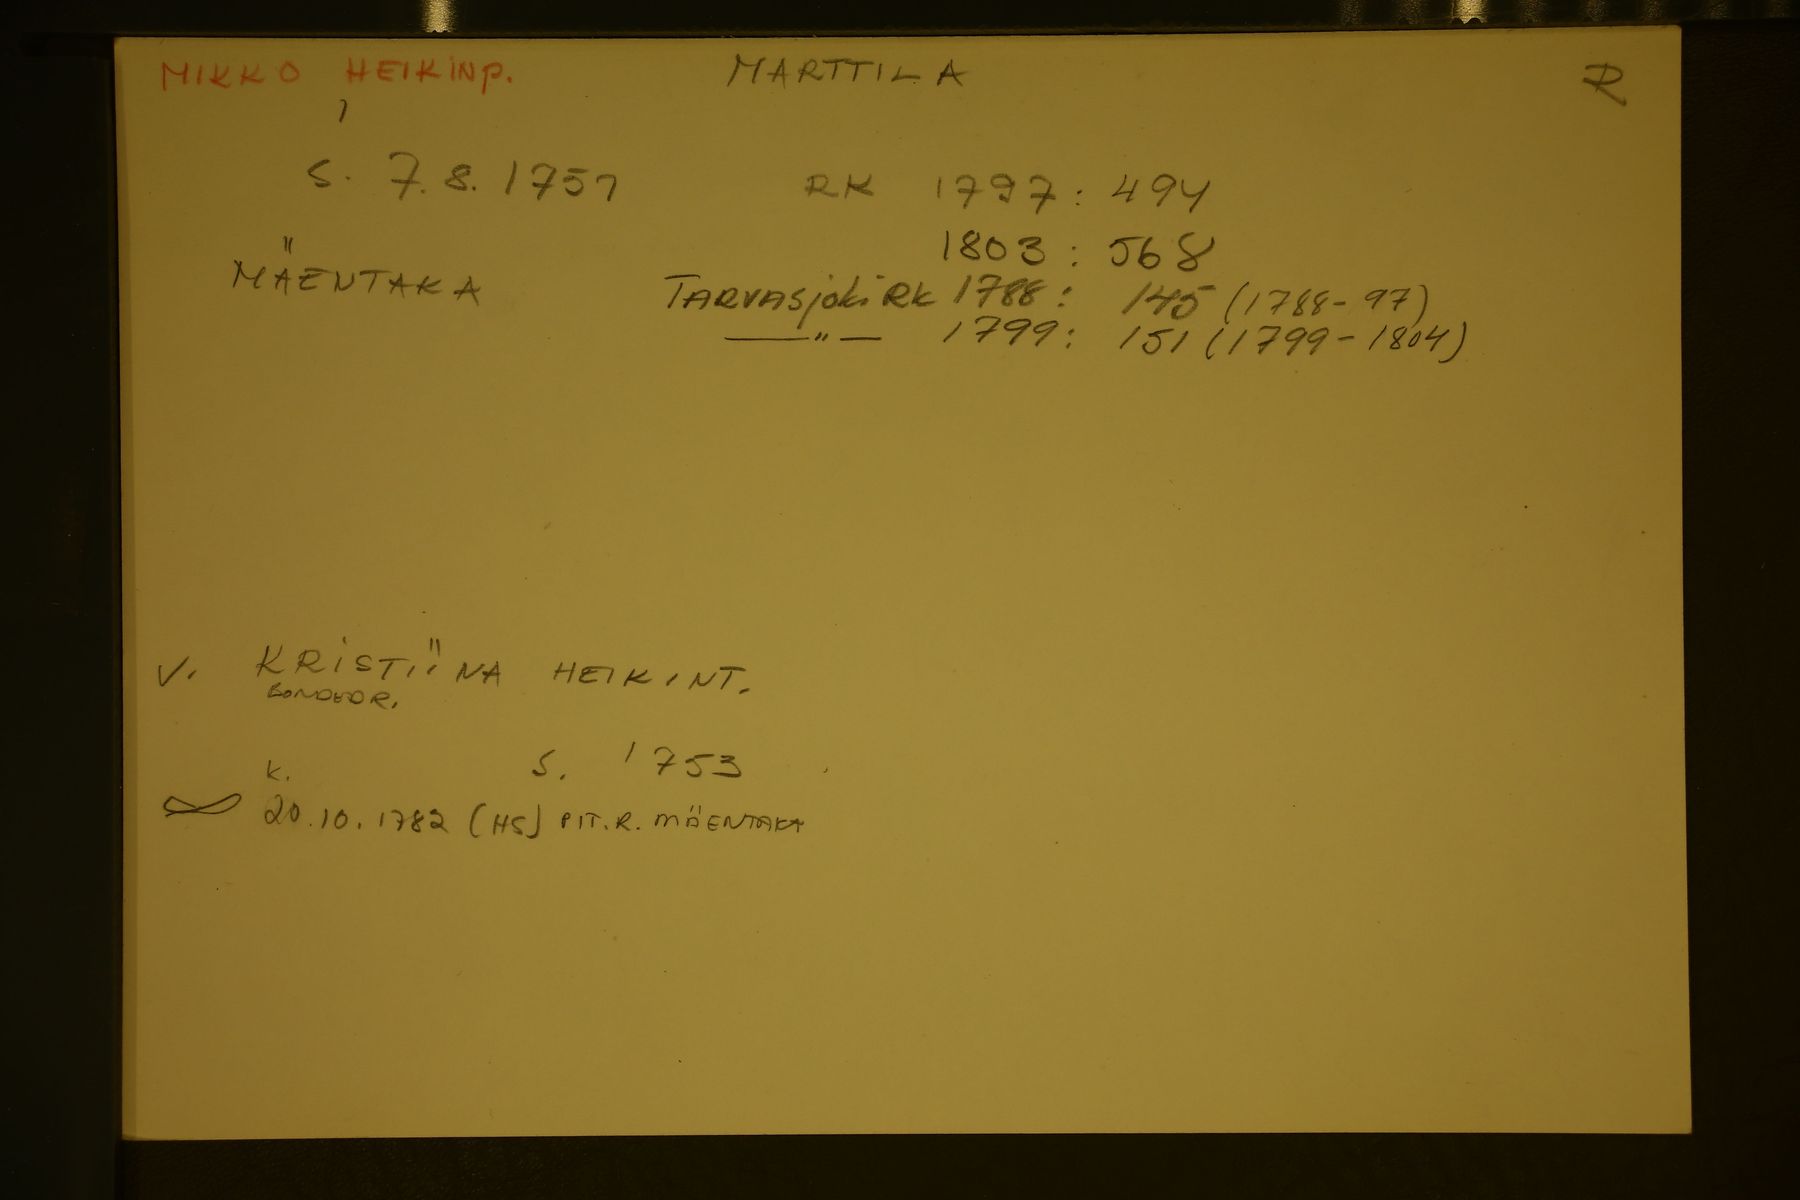 MIKKO HEIKINP. MARTTILA R
S. 7.8.1757 RK 1797: 494
1803: 568
MÄENTAKA TARVASjoki RK 1788: 145 (1788-97)
—"— 1799: 151 (1799-1804)
V. KRISTIINA HEIKINT.
BONDEDR.
S. 1753
k.
20.10.1782 (HS) PIT.R. MÄENTAKA